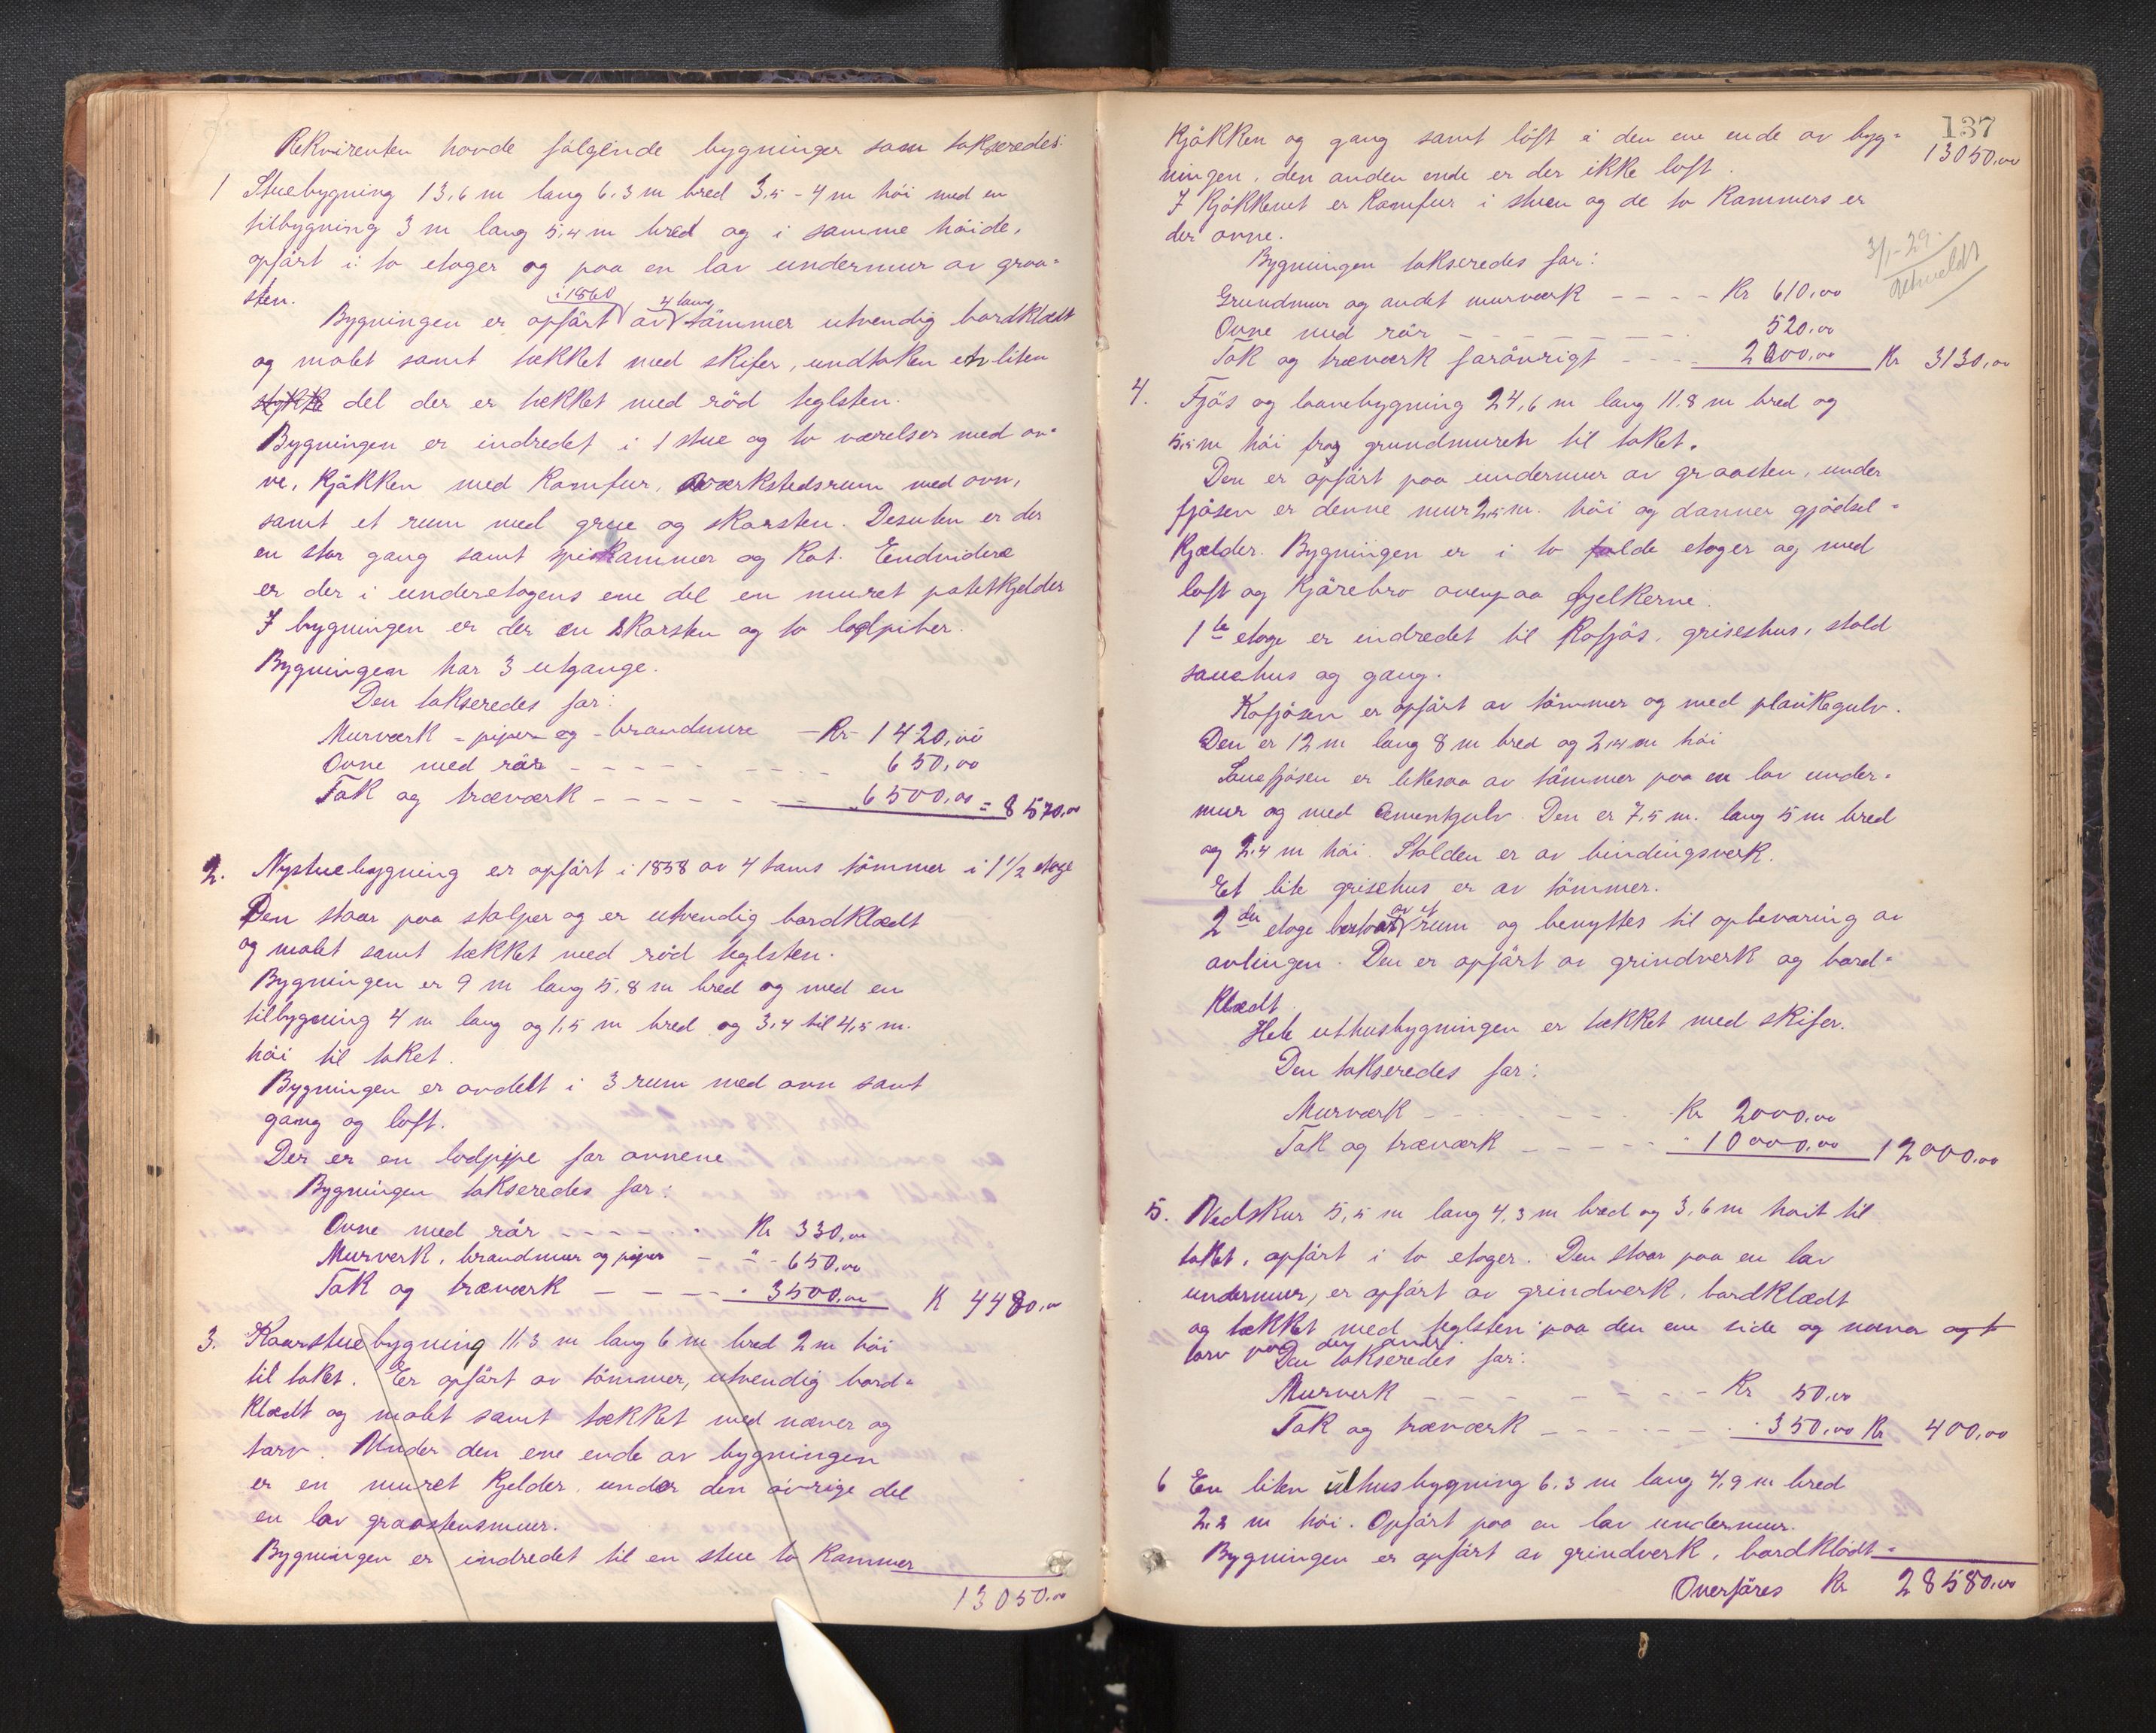 Rekvirenten havde følgende bygninger som takseredes:
1 Stuebygning 13,6 m lang 6.3 m bred 3,5 - 4 m høi med en
tilbygning 3 m lang 5,4 m bred og i samme høide,
opført i to etager og paa en lav undermur av graa=
sten.
i 1860 4 taus
Bygningen er opført av tømmer utvendig bordklædt
og malet samt tækket med skifer, undtaken en liten
stykke del der er tækket med rød teglsten.
Bygningen er indredet i 1 stue og to værelser med ov=
ne, kjøkken med komfur, verkstedsrum med ovn,
samt et rum med grue og skorsten. Desuten er der
en stor gang samt spiskammer og kot. Endvidere
er der i underetagens ene del en muret potetkjelder
I bygningen er der en skorsten og to lodpiber.
Bygningen har 3 utgange.
Den takseredes for:
Murværk - piper og - brandmure - Kr 1420,00
Ovne med rør - - - - - - - 650,00
Tak og træværk - - - - - - 6500,00 = 8570,00
2. Nystuebygning er opført i 1858 av 4 taus tømmer i 1 1/2 etage
Den staar paa stolper og er utvendig bordklædt
og malet samt tækket med rød teglsten.
Bygningen er 9 m lang 5,8 m bred og med en
tilbygning 4 m lang og 1,5 m bred og 3,4 til 4,5 m.
høi til taket.
Bygningen er avdelt i 3 rum med ovn samt
gang og loft.
Der er en lodpipe for ovnene
Bygningen takseredes for:
Ovne med rør - - - - - - Kr 330,00
Murverk, brandmur og piper - " - 650,00
Tak og træværk - - - - - 3500,00 K 4480,00
3. Kaarstuebygning 11,3 m lang 6 m bred 2 m høi
til taket. Er opført av tømmer, utvendig bord=
klædt og malet samt tækket med næver og
tarv. Under den ene ende av bygningen
er en muret kjelder, under den øvrige del
en lav graastensmur.
Bygningen er indredet til en stue to kammer
13050,00
137
13050,00
kjøkken og gang samt loft i den ene ende av byg=
ningen, den anden ende er der ikke loft.
I kjøkkenet er komfur i stuen og de to kammers er
der ovne.
3/1-29.
utmeldt
Bygningen takseredes for:
Grundmur og andet murværk - - - - Kr 610,00
Ovne med rør - - - - - - 520,00
Tak og træværk forøvrigt - - - - 2000,00 Kr 3130,00
4. Fjøs og laavebygning 24,6 m lang 11.8 m bred og
5,5 m høi fra grundmuren til taket.
Den er opført paa undermur av graasten, under
fjøsen er denne mur 2,5 m. høi og danner gjødsel=
kjælder. Bygningen er i to fulde etager og med
loft og kjørebro ovenpaa bjelkerne.
1ste etage er indredet til kofjøs, grisehus, stald
sauehus og gang.
Kofjøsen er opført av tømmer og med plankegulv.
Den er 12 m lang 8 m bred og 2,4 m høi
Sauefjøsen er likesaa av tømmer paa en lav under=
mur og med sementgulv. Den er 7,5 m. lang 5 m bred
og 2.4 m høi. Stalden er av bindingsverk.
Et lite grisehus er av tømmer.
av et
2den etage bestaar rum og benyttes til opbevaring av
avlingen. Den er opført av grindverk og bord=
klædt.
Hele uthusbygningen er tækket med skifer.
Den takseredes for:
Murværk - - - - - - - Kr 2000,00
Tak og træværk - - - - - - 10000,00 12000,00
5. Vedskur 5,5 m lang 4,3 m bred og 3,6 m høit til
taket, opført i to etager. Den staar paa en lav
undermur, er opført av grindverk, bordklædt
og tækket med teglsten paa den ene side og næver og t
tarv paa den andre.
Den takseredes for:
Murverk - - - - - - - Kr 50,00
Tak og træværk - - - - - - 350,00 Kr 400,00
6 En liten uthusbygning 6.3 m lang 4,9 m bred
2,2 m høi. Opført paa en lav undermur.
Bygningen er opført av grindverk, bordklædt=
Overføres Kr 28580,00